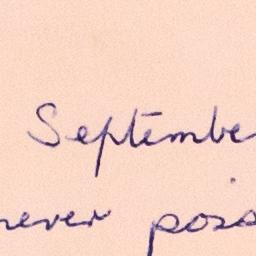 Septembe
never pois